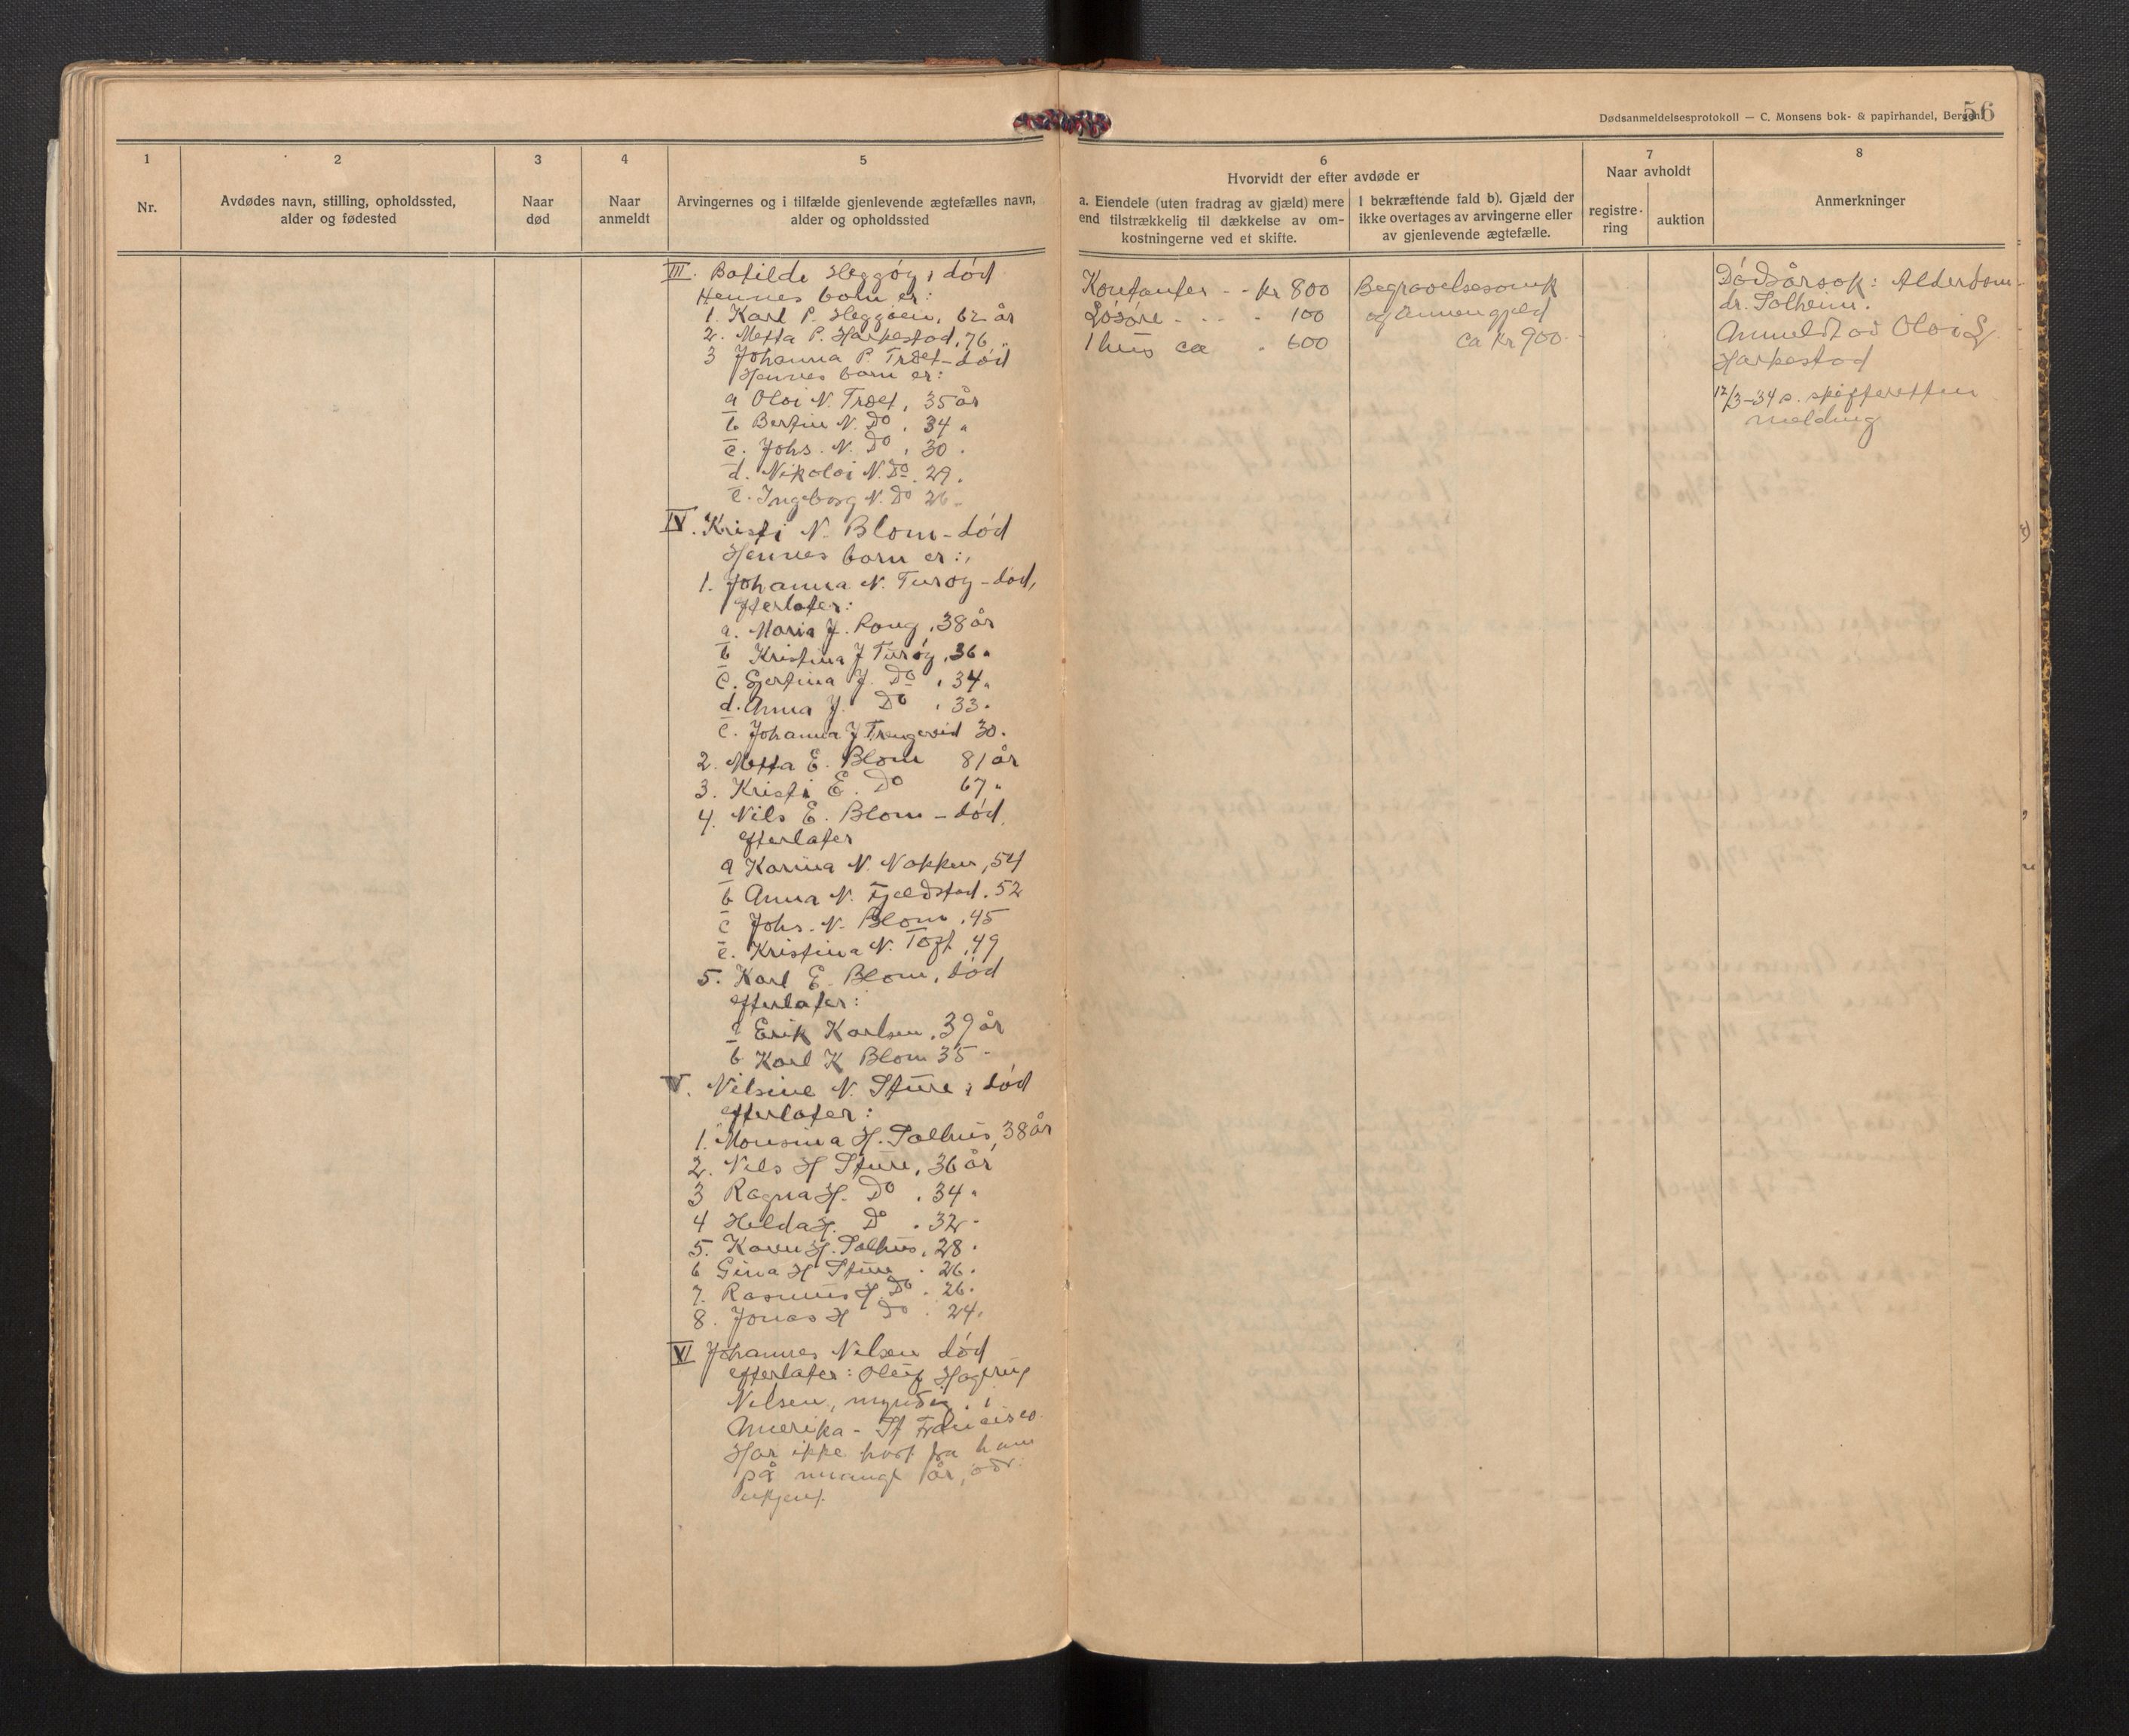 Dødsanmeldelsesprotokoll — C. Monsens bok- & papirhandel, Bergen.
56
1
Nr.
2
Avdødes navn, stilling, opholdssted,
alder og fødested
3
Naar
død
4
Naar
anmeldt
5
Arvingernes og i tilfælde gjenlevende ægtefælles navn,
alder og opholdssted
III. Botilde Heggøy, død
Hennes born er:
1. Karl P. Heggøen, 62 år
2. Metta P. Harkestad, 76 "
3 Johanna P. Træt - død
Hennes born er:
a Olai N. Træt, 35 år
b Bertin N. Do . 34 "
c. Johs. N. Do . 30 .
d. Nikolai N. Do . 29 .
e. Ingeborg N. Do 26 .
IV. Kristi N. Blom - død
Hennes born er:
1. Johanna N. Turøy - død,
efterlater:
a. Maria J. Rong, 38 år
b Kristina J Turøy, 36 "
c. Gjertina J. Do , 34 "
d. Anna J. Do , 33 .
e. Johanna J 30 .
2. Metta E. Blom 81 år
3. Kristi E. Do 67 "
4. Nils E. Blom - død.
efterlater
a Karina N. Nakken, 54
b Anna N. Fjeldstad . 52
c Johs. N. Blom . 45
e. Kristina N. Toft . 49
5. Karl E. Blom, død
efterlater:
a Erik Karlsen . 39 år
b Karl K Blom 35 -
V. Nilsine N. Sture, død
efterlater:
1. Monsina H. Solhus, 38 år
2. Nils H Sture, 36 år
3 Ragna H. Do . 34 "
4 Hilda H. Do . 32 -
5. Karen H. Solhus, 28 .
6 Gina H Sture . 26 .
7. Rasmus H Do . 26 .
8. Jonas H Do . 24 .
VI Johannes Nilsen død
efterlater: Oluf Hagerup
Nilsen, myndig, i
Amerika - St Francisco.
Har ikke hørt fra ham
på mange år, adr.
ukjent.
6
Hvorvidt der efter avdøde er
a. Eiendele (uten fradrag av gjæld) mere
end tilstrækkelig til dækkelse av om-
kostningerne ved et skifte.
Kontanter - - kr 800
Løsøre - . . - 100
1 hus ca . 600
I bekræftende fald b). Gjæld der
ikke overtages av arvingerne eller
av gjenlevende ægtefælle.
Begravelsesomk
og annen gjeld
ca kr 900 -
7
Naar avholdt
registre-
ring
auktion
8
Anmerkninger
Dødsårsak: Alderdom
dr. Solheim.
Anmeldt av Olai
Harkestad
12/3-34 s. skifteretten
melding